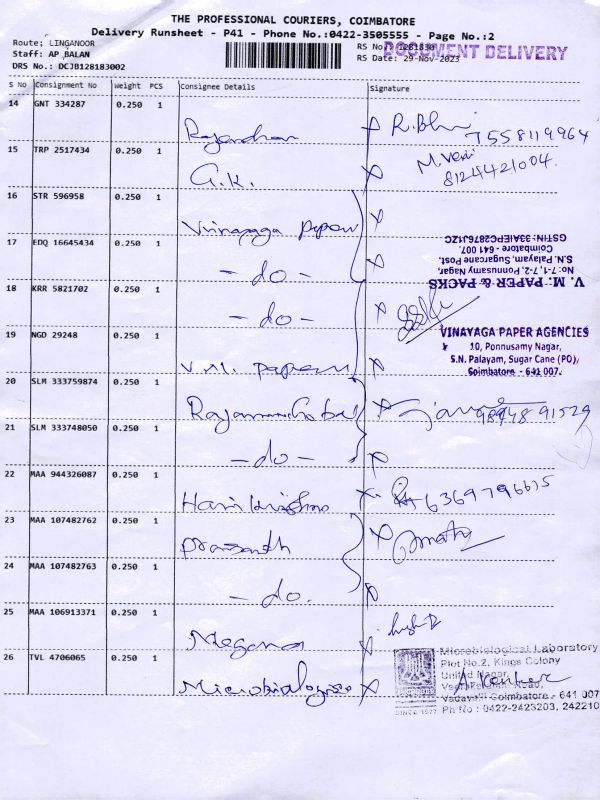 THE PROFESSIONAL COURIERS, COIMBATORE
Delivery Runsheet - P41 - Phone No.:0422-3505555 - Page No.:2
Route; LINGANOOR
Staff: AP BALAN
DRS No.: DCJB128183002
RS No.: 1281830
DOCUMENT DELIVERY
RS Date: 29-Nov-2023
S No Consignment No Weight PCS Consignee Details Signature
14 GNT 334287 0.250 1
Rajendran R.Bh 7558119964
15 TRP 2517434 0.250 1
G.K. M. 8124421004.
16 STR 596958 0.250 1
Vinayaga Paper
17 EDQ 16645434 0.250 1
- do -
V. M. PAPER & PACKS
No: 7-1, 7-2, Ponnusamy Nagar,
S.N. Palayam, Sugarcane Post,
Coimbatore - 641 007.
GSTIN: 33AIEPC2876J1ZC
18 KRR 5821702 0.250 1
- do -
19 NGD 29248 0.250 1
V.M. Papers
VINAYAGA PAPER AGENCIES
10, Ponnusamy Nagar,
S.N. Palayam, Sugar Cane (PO),
Coimbatore - 641 007.
20 SLM 333759874 0.250 1
98948 91529
21 SLM 333748050 0.250 1
- do -
22 MAA 944326087 0.250 1
Harikrishna 6369796615
23 MAA 107482762 0.250 1
Prasanth
24 MAA 107482763 0.250 1
- do.
25 MAA 106913371 0.250 1
Megana
26 TVL 4706065 0.250 1
Microbiological Laboratory
Plot No.2, Kings Colony
United Nagar,
Road,
Vadavalli Coimbatore - 641 007
Ph No : 0422-2423203, 242210
SINCE 1977